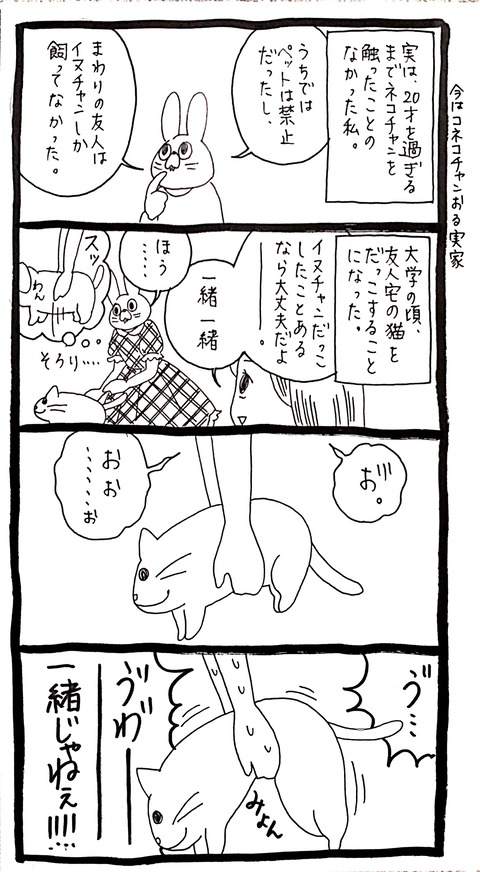 今はコネコチャンおる実家
実は、20才を過ぎる
までネコチャンを
触ったことの
なかった私。
うちでは
ペットは禁止
だったし、
まわりの友人は
イヌチャンしか
飼ってなかった。
大学の頃、
友人宅の猫を
だっこすること
になった。
イヌチャンだっこ
したことある
なら大丈夫だよ
ーー。
一緒一緒
ほう
……
スッ
わん
そろり……
お゛。
おお
……ぉ
ゔ…
ゔわ゛ーー
みょん
一緒じゃねぇ!!!!